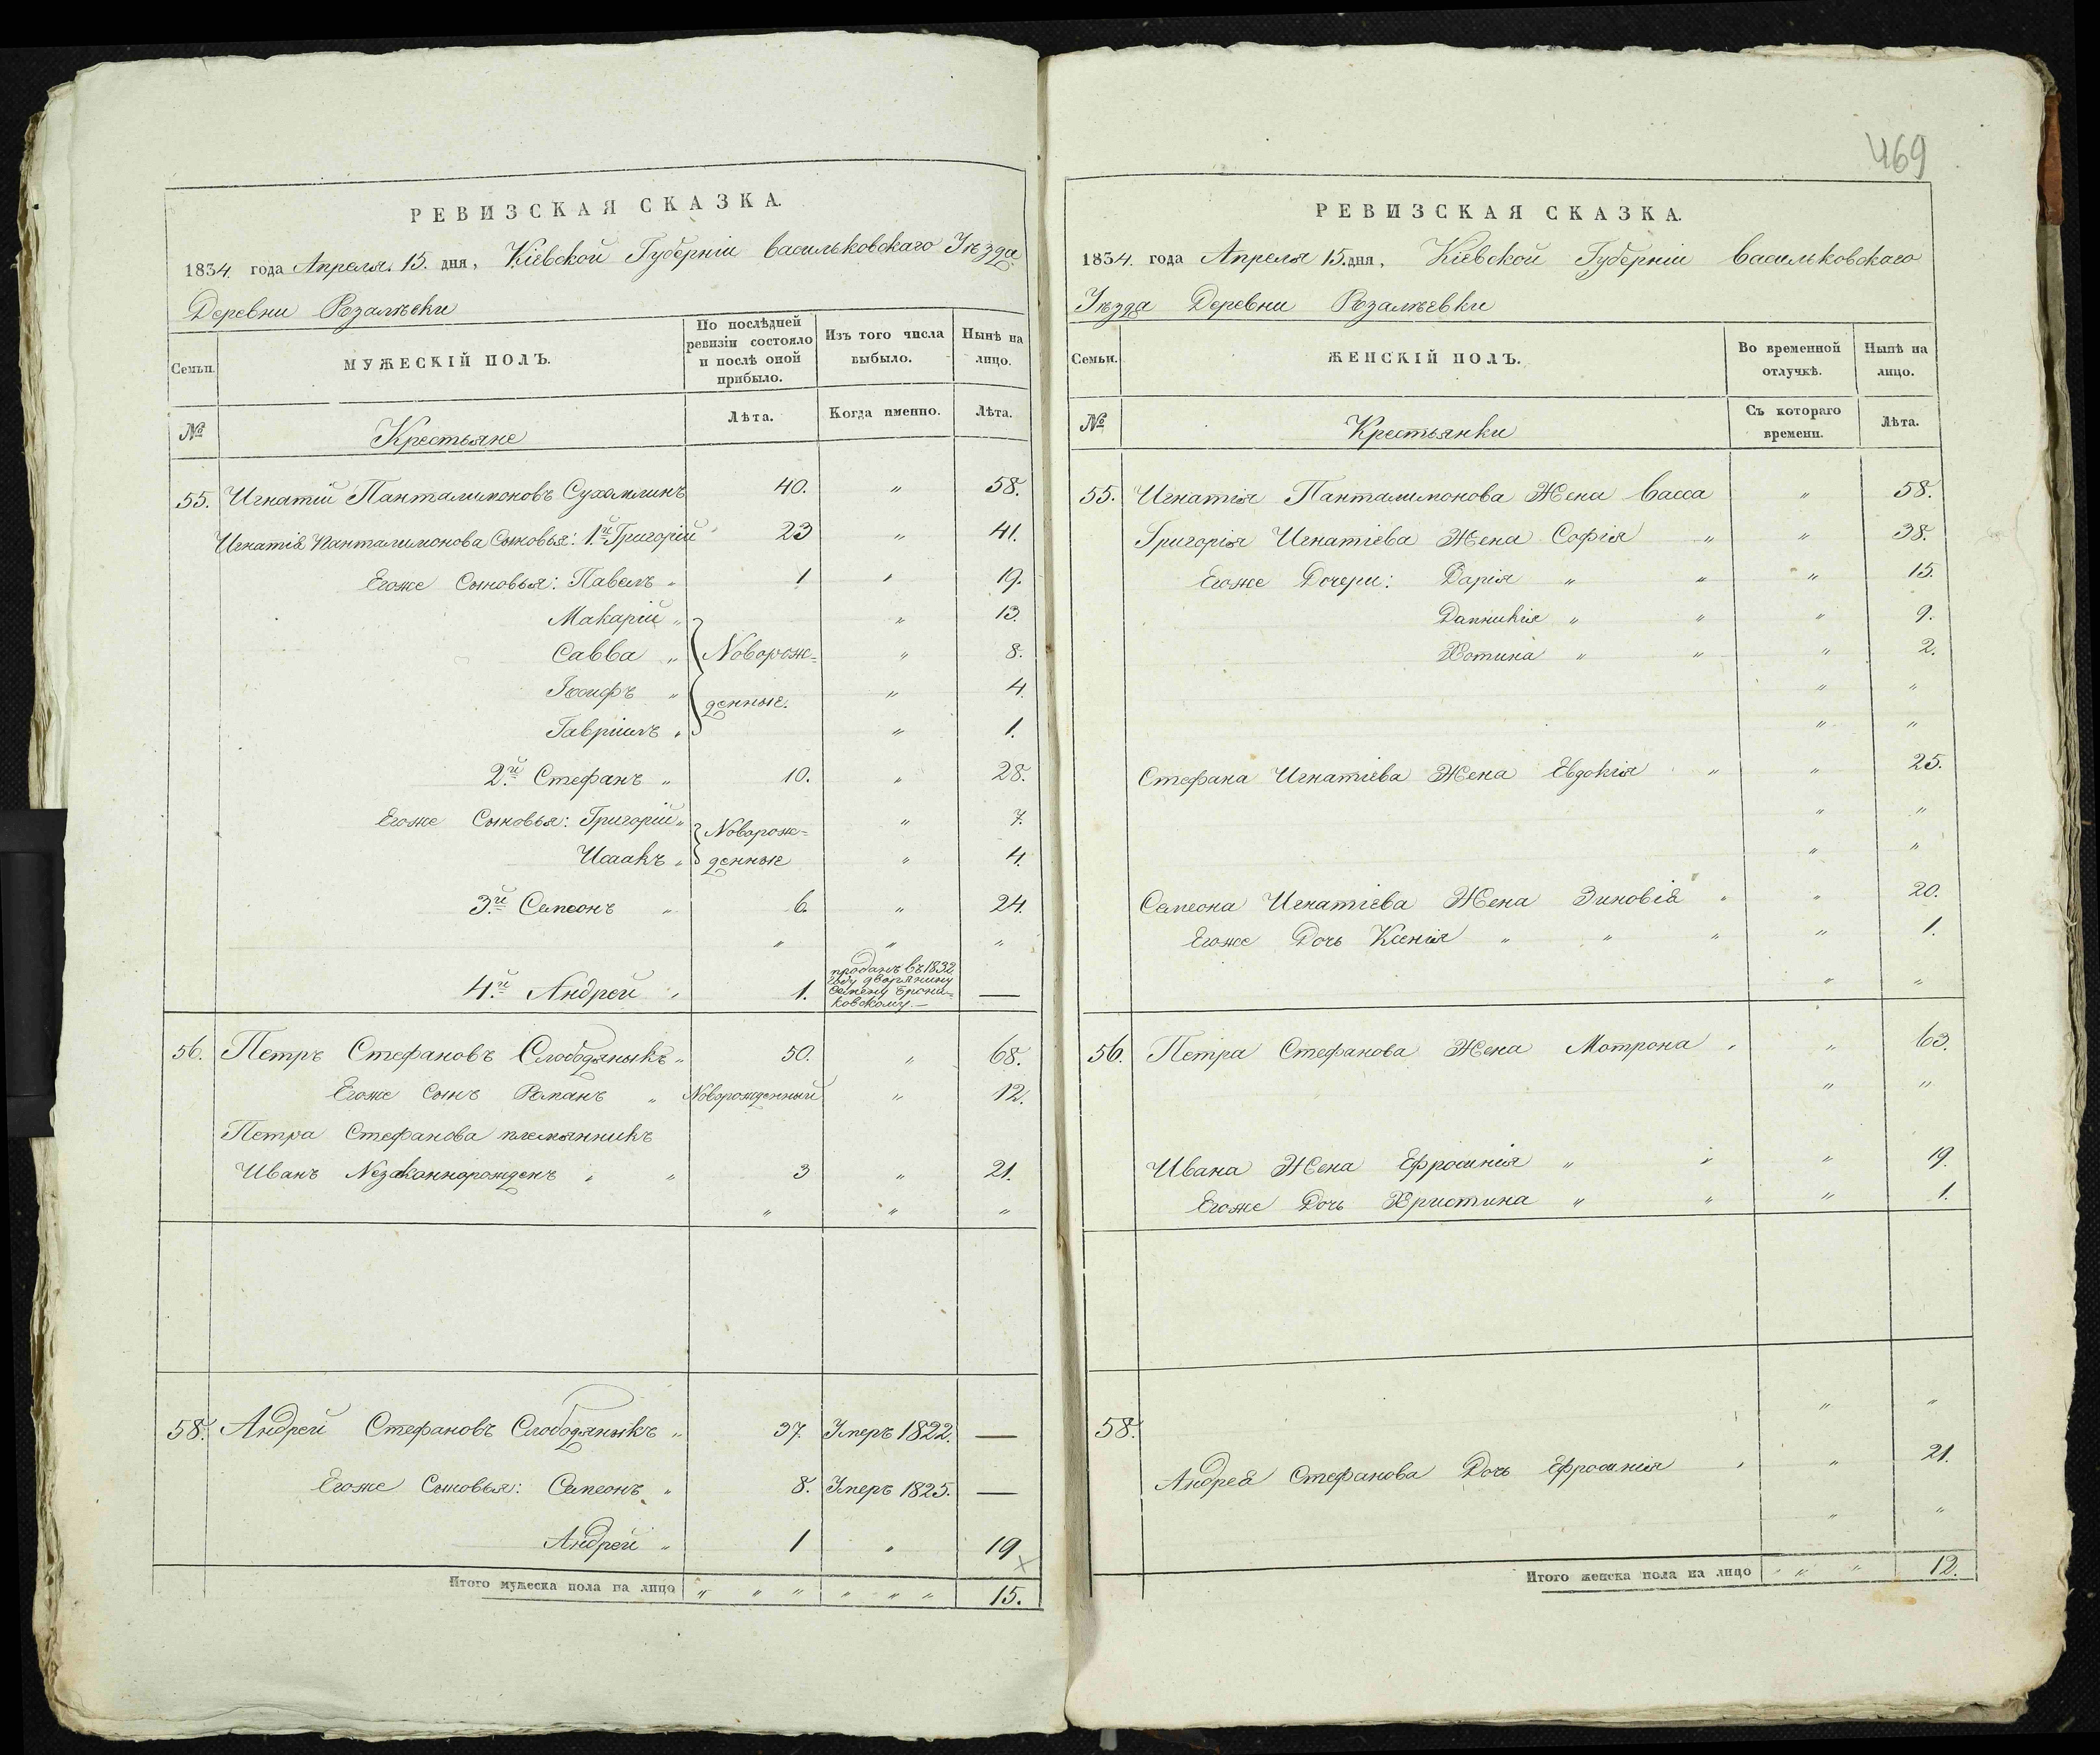 РЕВИЗСКАЯ СКАЗКА.
1834. года Апреля. 15. дня, Кіевской Губерніи Васильковскаго Уѣзда
Деревни
Семьи.
МУЖЕСКІЙ ПОЛЪ.
По послѣдней ревизіи состояло и послѣ оной прибыло.
Изъ того числа выбыло.
Нынѣ на лицо.
№
Крестьяне
Лѣта.
Когда именно.
Лѣта.
55. Игнатій Панталимоновъ 40. " 58.
Игнатія Панталимонова Сыновья: 1.й Григорій 23 " 41.
Егоже Сыновья: Павелъ " 1 " 19.
Макарій " " 13.
Савва " Новорож= " 8.
Іосифъ " денные. " 4.
Гавріилъ " " 1.
2.й Стефанъ " 10. " 28.
Егоже Сыновья: Григорій " Новорож= " 7.
Исаакъ " денные " 4.
3.й Симеонъ " 6. " 24.
" " "
4.й Андрей " 1. проданъ въ 1832 году дворянину Семену Брони=ковскому. — —
56. Петръ Стефановъ Слободяныкъ " 50. " 68.
Егоже Сынъ Романъ " Новорожденный " 12.
Петра Стефанова племянникъ
Иванъ Незаконнорожденъ " " 3 " 21.
" " "
58. Андрей Стефановъ Слободяныкъ " 37. Умеръ 1822. —
Егоже Сыновья: Симеонъ " 8. Умеръ 1825. —
Андрей " 1 " 19
Итого мужеска пола на лицо " " " " " " 15.
469
РЕВИЗСКАЯ СКАЗКА.
1834. года Апреля 15. дня, Кіевской Губерніи Васильковскаго
Уѣзда Деревни
Семьи.
ЖЕНСКІЙ ПОЛЪ.
Во временной отлучкѣ.
Нынѣ на лицо.
№
Крестьянки
Съ котораго времени.
Лѣта.
55. Игнатія Панталимонова Жена Васса " 58.
Григорія Игнатіева Жена Софія " " 38.
Егоже Дочери: Дарія " " " 15.
" " " 9.
Хотина " " " 2.
" "
" "
Стефана Игнатіева Жена Евдокія " " 25.
" "
" "
Симеона Игнатіева Жена Зиновія " " 20.
Егоже Дочь Ксенія " " " " 1.
" "
56. Петра Стефанова Жена Мотрона " " 63.
" "
Ивана Жена Ефросинія " " " 19.
Егоже Дочь Христина " " " 1.
58. " "
Андрея Стефанова Дочь Ефросинія " " 21.
" "
Итого женска пола на лицо " " " 12.